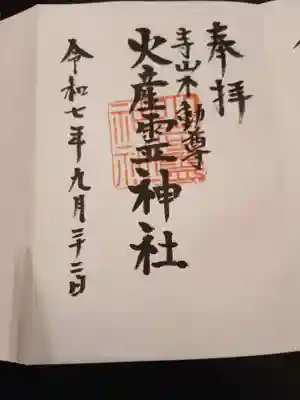 奉拝
寺山不動尊
火産霊神社
令和七年九月二十二日